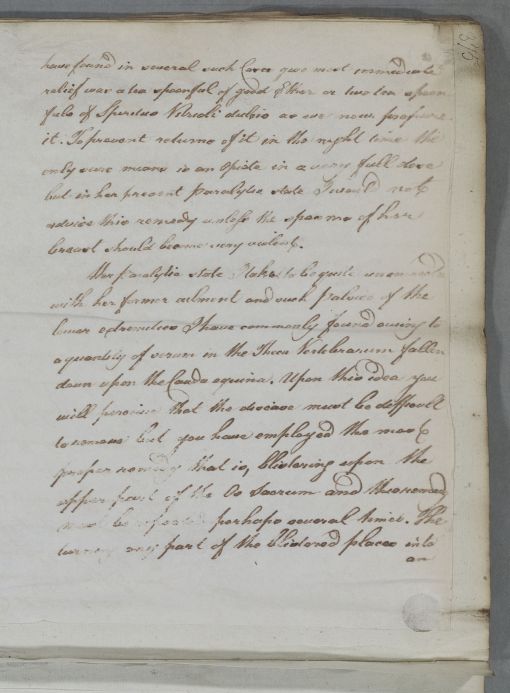 375
have found in several such Cases gave most immediate
relief was a tea spoonful of good Ether or two tea spoon
fuls of Spiritus Vitrioli dulcis as we now prepare
it. To prevent returns of it in the night time the
only sure means is an opiate in a very full dose
but in her present paralytic state I would not
advise this remedy unless the spasms of her
breast should become very violent.
Her paralytic state I take to be quite unconnected
with her former ailment and such palsies of the
lower extremities I have commonly found owing to
a quantity of serum in the Theca Vertebrarum fallen
down upon the Cauda equina. Upon this idea you
will perceive that the disease must be difficult
to remove but you have employed the most
proper remedy that is, blistering upon the
upper part of the Os Sacrum and the remedy
must be repeated perhaps several times. The
turning any part of the blistered places into
an